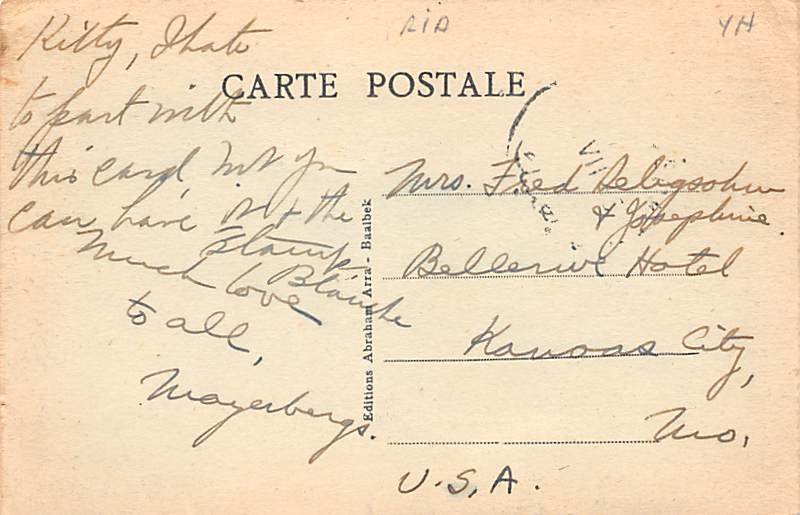 RIA
YH
CARTE POSTALE
Kitty, I hate
to part with
this card, but you
can have it & the
stamp
Much love
Blanche
to all,
Mayerbergs.
Editions Abraham Arra' - Baalbek
Mrs. Fred Seligsohn
& Josephine.
Bellerive Hotel
Kansas City,
Mo.
U.S.A.